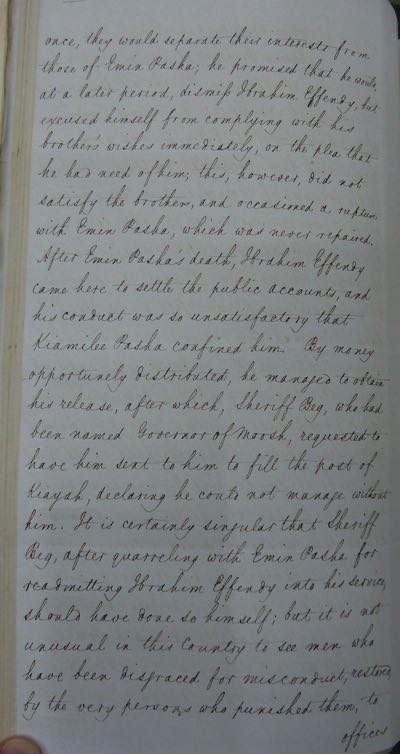 once, they would separate their interests from
those of Emin Pasha; he promised that he would,
at a later period, dismiss Ibrahim Effendy, but
excused himself from complying with his
brother's wishes immediately, on the plea that
he had need of him; this, however, did not
satisfy the brothers, and occasioned a rupture
with Emin Pasha, which was never repaired.
After Emin Pasha's death, Ibrahim Effendy
came here to settle the public accounts, and
his conduct was so unsatisfactory that
Kiamilee Pasha confined him. By money
opportunely distributed, he managed to obtain
his release, after which, Sheriff Beg, who had
been named Governor of Moosh, requested to
have him sent to him to fill the post of
Kiayah, declaring he could not manage without
him. It is certainly singular that Sheriff
Beg, after quarreling with Emin Pasha for
readmitting Ibrahim Effendy into his service,
should have done so himself; but it is not
unusual in this Country to see men who
have been disgraced for misconduct, restored,
by the very persons who punished them, to
offices